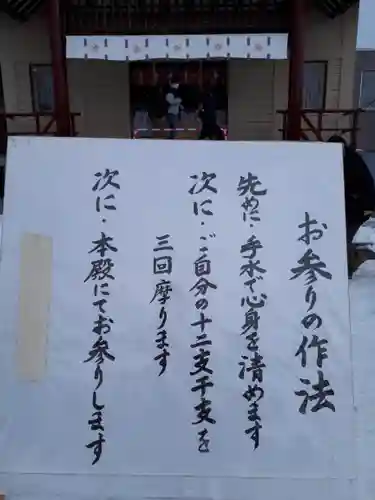 お参りの作法
先めに・手水で心身を清めます
次に・ご自分の十二支干支を
三回摩ります
次に・本殿にてお参りします